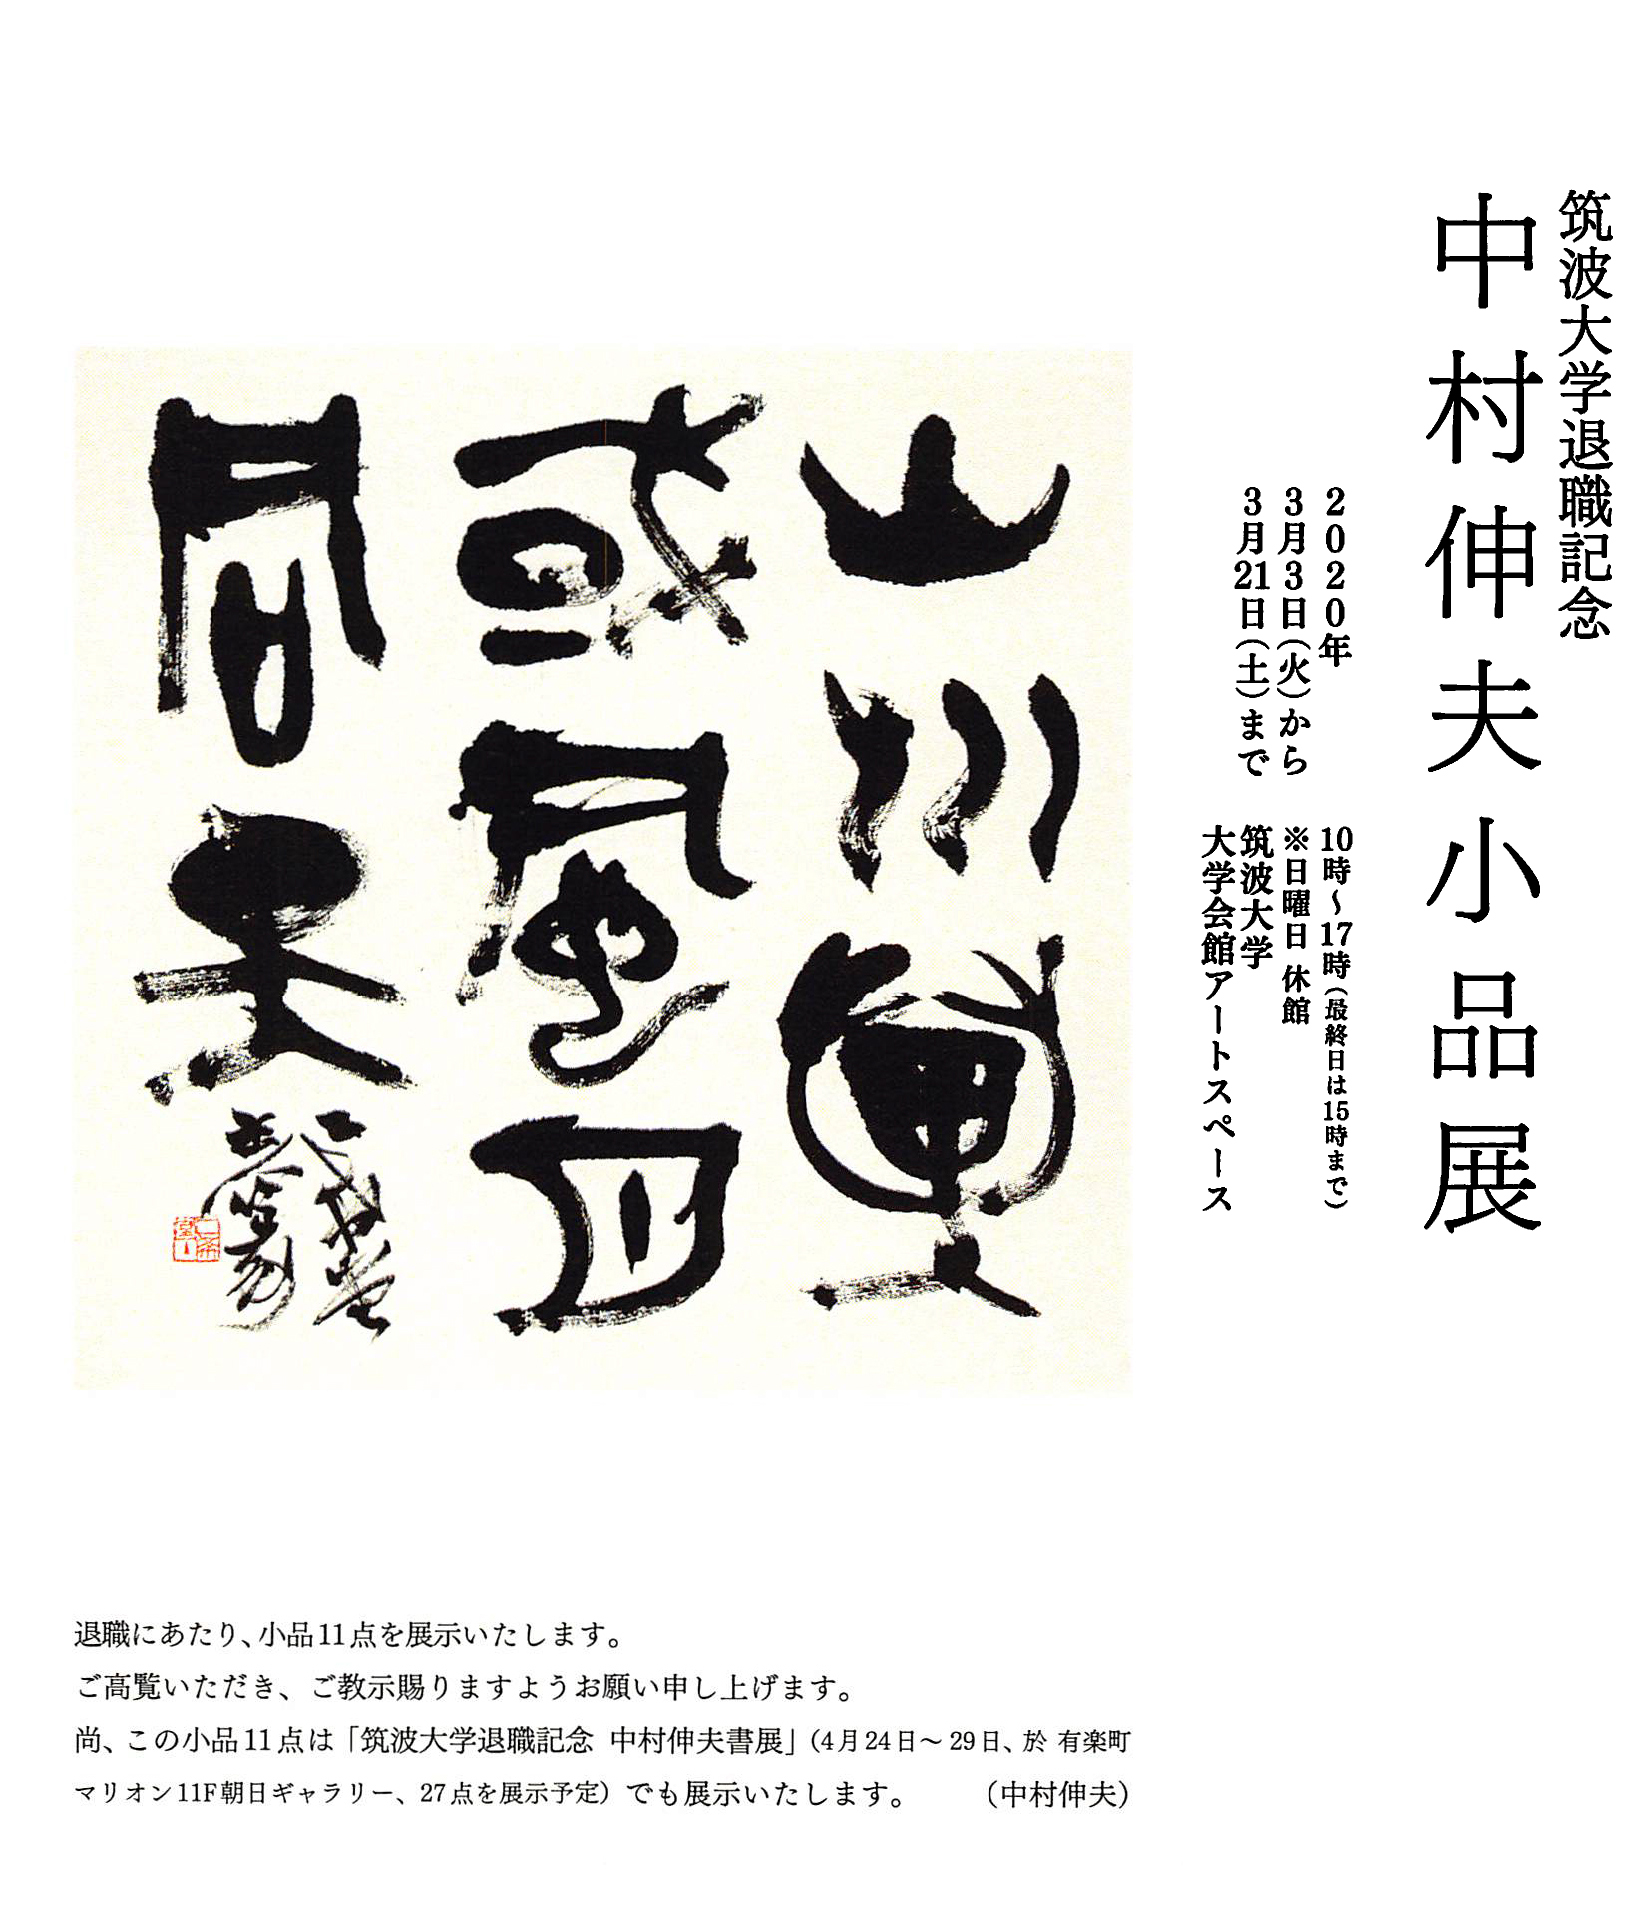 筑波大学退職記念
中村伸夫小品展
2020年
3月3日(火)から
3月21日(土)まで
10時〜17時(最終日は15時まで)
※日曜日 休館
筑波大学
大学会館アートスペース
山川異
或風月
同天
退職にあたり、小品11点を展示いたします。
ご高覧いただき、ご教示賜りますようお願い申し上げます。
尚、この小品11点は「筑波大学退職記念 中村伸夫書展」(4月24日〜29日、於 有楽町
マリオン11F朝日ギャラリー、27点を展示予定)でも展示いたします。 (中村伸夫)